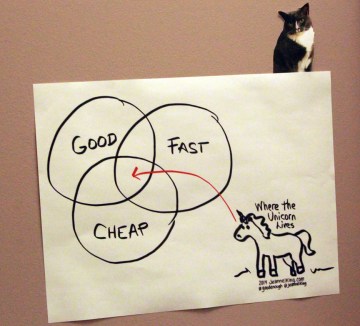 GOOD
FAST
CHEAP
Where the
Unicorn
Lives